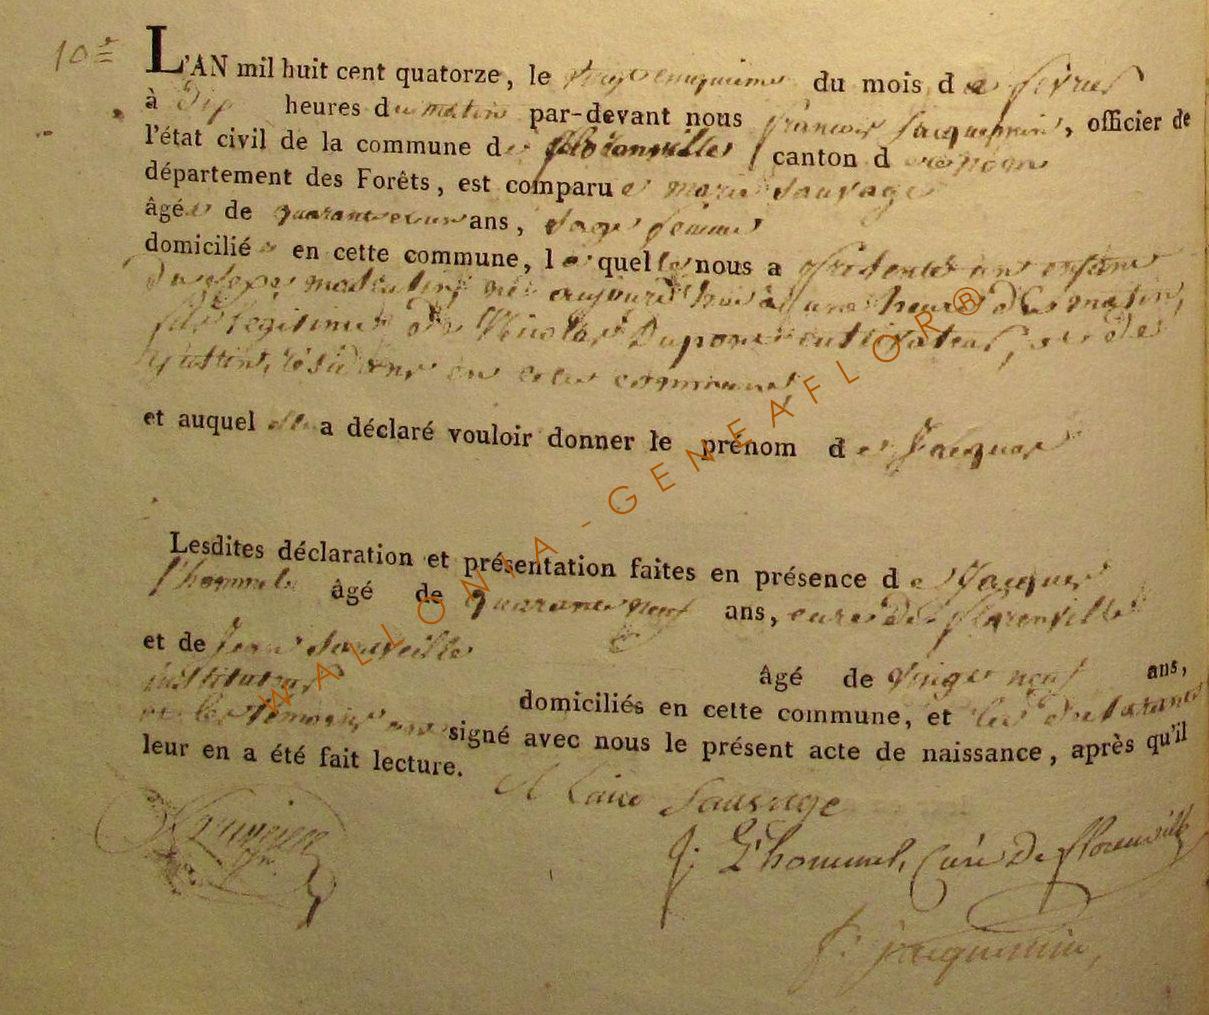 10e
L'AN mil huit cent quatorze, le vingt cinquieme du mois de fevrier
à dix heures du matin par-devant nous francois Jacquemin, officier de
l'état civil de la commune de florenville canton d
département des Forêts, est comparue marie Sauvage
âgée de quarante ans, sage femme
domiciliée en cette commune, laquelle nous a presenté un enfant
du sexe masculin, né aujourd'hui à une heure du matin,
fils legitime de Nicolas Dupont cultivateur, et de
résident en cette commune,
et auquel elle a déclaré vouloir donner le prénom de Jacques
Lesdites déclaration et présentation faites en présence de Jacques
l'hommel âgé de quarante neuf ans, curé de florenville
et de Jean âgé de vingt neuf ans,
instituteur domiciliés en cette commune, et les declarants
et les temoins ont signé avec nous le présent acte de naissance, après qu'il
leur en a été fait lecture.
Marie Sauvage
J: L'hommel, Curé De florenville
f: jacquemin,
WALLONIA-GENEAFLOR®